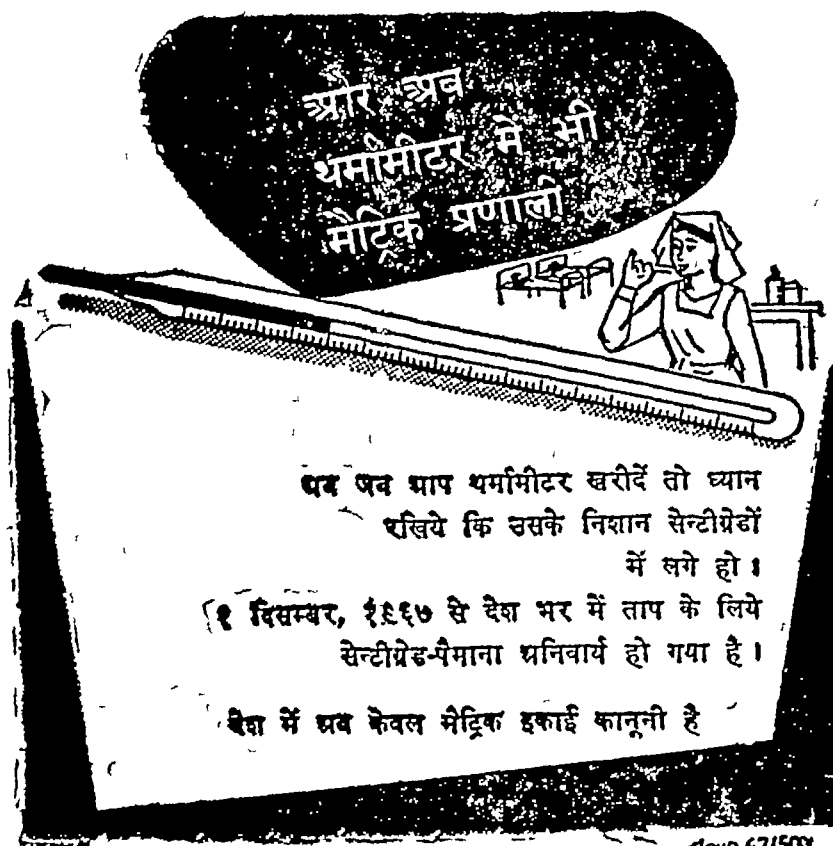 और अब
थर्मामीटर में भी
मैट्रिक प्रणाली
अब जब आप थर्मामीटर खरीदें तो ध्यान
रखिये कि उसके निशान सेन्टीग्रेडों
में लगे हो।
१ दिसम्बर, १९६७ से देश भर में ताप के लिये
सेन्टीग्रेड-पैमाना अनिवार्य हो गया है।
देश में अब केवल मैट्रिक इकाई कानूनी है